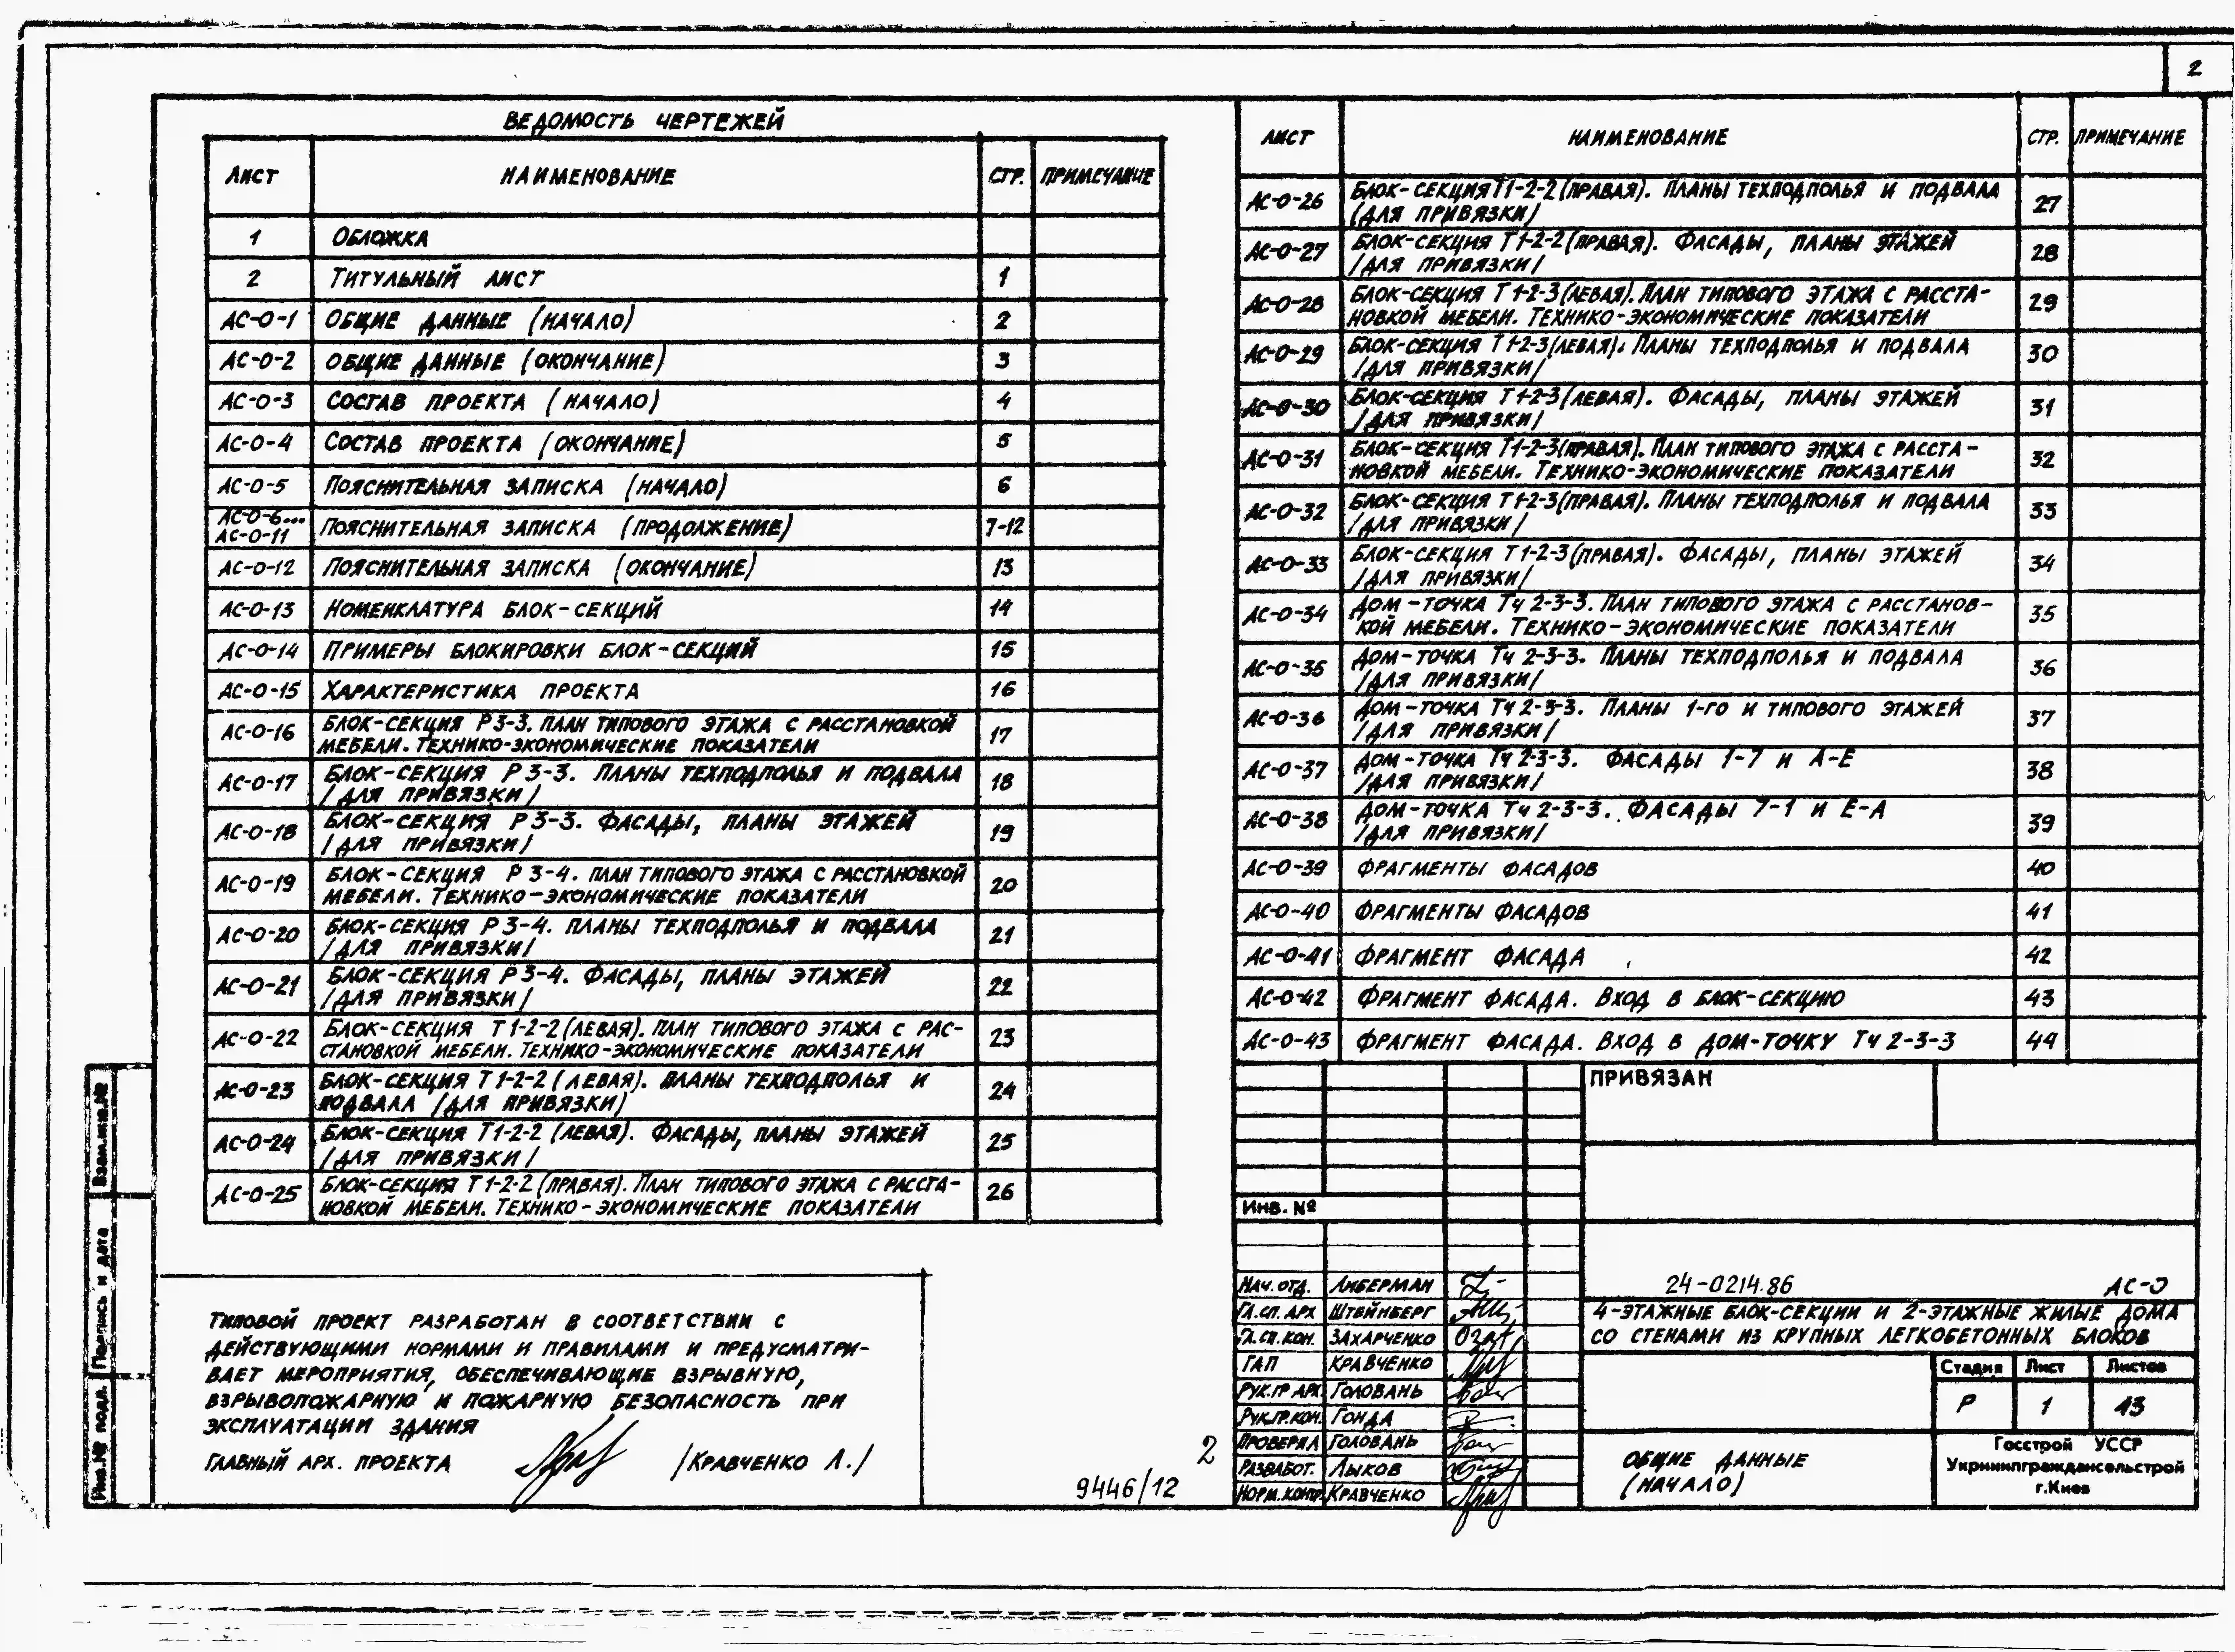 2
ВЕДОМОСТЬ ЧЕРТЕЖЕЙ
ЛИСТ НАИМЕНОВАНИЕ СТР. ПРИМЕЧАНИЕ
1 ОБЛОЖКА
2 ТИТУЛЬНЫЙ ЛИСТ 1
АС-О-1 ОБЩИЕ ДАННЫЕ (НАЧАЛО) 2
АС-О-2 ОБЩИЕ ДАННЫЕ (ОКОНЧАНИЕ) 3
АС-О-3 СОСТАВ ПРОЕКТА (НАЧАЛО) 4
АС-О-4 СОСТАВ ПРОЕКТА (ОКОНЧАНИЕ) 5
АС-О-5 ПОЯСНИТЕЛЬНАЯ ЗАПИСКА (НАЧАЛО) 6
АС-О-6...
АС-О-11 ПОЯСНИТЕЛЬНАЯ ЗАПИСКА (ПРОДОЛЖЕНИЕ) 7-12
АС-О-12 ПОЯСНИТЕЛЬНАЯ ЗАПИСКА (ОКОНЧАНИЕ) 13
АС-О-13 НОМЕНКЛАТУРА БЛОК-СЕКЦИЙ 14
АС-О-14 ПРИМЕРЫ БЛОКИРОВКИ БЛОК-СЕКЦИЙ 15
АС-О-15 ХАРАКТЕРИСТИКА ПРОЕКТА 16
АС-О-16 БЛОК-СЕКЦИЯ Р3-3. ПЛАН ТИПОВОГО ЭТАЖА С РАССТАНОВКОЙ
МЕБЕЛИ. ТЕХНИКО-ЭКОНОМИЧЕСКИЕ ПОКАЗАТЕЛИ 17
АС-О-17 БЛОК-СЕКЦИЯ Р3-3. ПЛАНЫ ТЕХПОДПОЛЬЯ И ПОДВАЛА
/ДЛЯ ПРИВЯЗКИ/ 18
АС-О-18 БЛОК-СЕКЦИЯ Р3-3. ФАСАДЫ, ПЛАНЫ ЭТАЖЕЙ
/ДЛЯ ПРИВЯЗКИ/ 19
АС-О-19 БЛОК-СЕКЦИЯ Р3-4. ПЛАН ТИПОВОГО ЭТАЖА С РАССТАНОВКОЙ
МЕБЕЛИ. ТЕХНИКО-ЭКОНОМИЧЕСКИЕ ПОКАЗАТЕЛИ 20
АС-О-20 БЛОК-СЕКЦИЯ Р3-4. ПЛАНЫ ТЕХПОДПОЛЬЯ И ПОДВАЛА
/ДЛЯ ПРИВЯЗКИ/ 21
АС-О-21 БЛОК-СЕКЦИЯ Р3-4. ФАСАДЫ, ПЛАНЫ ЭТАЖЕЙ
/ДЛЯ ПРИВЯЗКИ/ 22
АС-О-22 БЛОК-СЕКЦИЯ Т1-2-2(ЛЕВАЯ). ПЛАН ТИПОВОГО ЭТАЖА С РАС-
СТАНОВКОЙ МЕБЕЛИ. ТЕХНИКО-ЭКОНОМИЧЕСКИЕ ПОКАЗАТЕЛИ 23
АС-О-23 БЛОК-СЕКЦИЯ Т1-2-2(ЛЕВАЯ). ПЛАНЫ ТЕХПОДПОЛЬЯ И
ПОДВАЛА /ДЛЯ ПРИВЯЗКИ/ 24
АС-О-24 БЛОК-СЕКЦИЯ Т1-2-2 (ЛЕВАЯ). ФАСАДЫ, ПЛАНЫ ЭТАЖЕЙ
/ДЛЯ ПРИВЯЗКИ/ 25
АС-О-25 БЛОК-СЕКЦИЯ Т1-2-2(ПРАВАЯ). ПЛАН ТИПОВОГО ЭТАЖА С РАССТА-
НОВКОЙ МЕБЕЛИ. ТЕХНИКО-ЭКОНОМИЧЕСКИЕ ПОКАЗАТЕЛИ 26
ЛИСТ НАИМЕНОВАНИЕ СТР. ПРИМЕЧАНИЕ
АС-О-26 БЛОК-СЕКЦИЯ Т1-2-2(ПРАВАЯ). ПЛАНЫ ТЕХПОДПОЛЬЯ И ПОДВАЛА
(ДЛЯ ПРИВЯЗКИ/ 27
АС-О-27 БЛОК-СЕКЦИЯ Т1-2-2(ПРАВАЯ). ФАСАДЫ, ПЛАНЫ ЭТАЖЕЙ
/ДЛЯ ПРИВЯЗКИ/ 28
АС-О-28 БЛОК-СЕКЦИЯ Т1-2-3(ЛЕВАЯ). ПЛАН ТИПОВОГО ЭТАЖА С РАССТА-
НОВКОЙ МЕБЕЛИ. ТЕХНИКО-ЭКОНОМИЧЕСКИЕ ПОКАЗАТЕЛИ 29
АС-О-29 БЛОК-СЕКЦИЯ Т1-2-3(ЛЕВАЯ). ПЛАНЫ ТЕХПОДПОЛЬЯ И ПОДВАЛА
/ДЛЯ ПРИВЯЗКИ/ 30
АС-О-30 БЛОК-СЕКЦИЯ Т1-2-3(ЛЕВАЯ). ФАСАДЫ, ПЛАНЫ ЭТАЖЕЙ
/ДЛЯ ПРИВЯЗКИ/ 31
АС-О-31 БЛОК-СЕКЦИЯ Т1-2-3(ПРАВАЯ). ПЛАН ТИПОВОГО ЭТАЖА С РАССТА-
НОВКОЙ МЕБЕЛИ. ТЕХНИКО-ЭКОНОМИЧЕСКИЕ ПОКАЗАТЕЛИ 32
АС-О-32 БЛОК-СЕКЦИЯ Т1-2-3(ПРАВАЯ). ПЛАНЫ ТЕХПОДПОЛЬЯ И ПОДВАЛА
/ДЛЯ ПРИВЯЗКИ/ 33
АС-О-33 БЛОК-СЕКЦИЯ Т1-2-3(ПРАВАЯ). ФАСАДЫ, ПЛАНЫ ЭТАЖЕЙ
/ДЛЯ ПРИВЯЗКИ/ 34
АС-О-34 ДОМ-ТОЧКА Тч 2-3-3. ПЛАН ТИПОВОГО ЭТАЖА С РАССТАНОВ-
КОЙ МЕБЕЛИ. ТЕХНИКО-ЭКОНОМИЧЕСКИЕ ПОКАЗАТЕЛИ 35
АС-О-35 ДОМ-ТОЧКА Тч 2-3-3. ПЛАНЫ ТЕХПОДПОЛЬЯ И ПОДВАЛА
/ДЛЯ ПРИВЯЗКИ/ 36
АС-О-36 ДОМ-ТОЧКА Тч 2-3-3. ПЛАНЫ 1-ГО И ТИПОВОГО ЭТАЖЕЙ
/ДЛЯ ПРИВЯЗКИ/ 37
АС-О-37 ДОМ-ТОЧКА Тч 2-3-3. ФАСАДЫ 1-7 И А-Е
/ДЛЯ ПРИВЯЗКИ/ 38
АС-О-38 ДОМ-ТОЧКА Тч 2-3-3. ФАСАДЫ 7-1 И Е-А
/ДЛЯ ПРИВЯЗКИ/ 39
АС-О-39 ФРАГМЕНТЫ ФАСАДОВ 40
АС-О-40 ФРАГМЕНТЫ ФАСАДОВ 41
АС-О-41 ФРАГМЕНТ ФАСАДА 42
АС-О-42 ФРАГМЕНТ ФАСАДА. ВХОД В БЛОК-СЕКЦИЮ 43
АС-О-43 ФРАГМЕНТ ФАСАДА. ВХОД В ДОМ-ТОЧКУ Тч 2-3-3 44
ПРИВЯЗАН
Инв. №
Взам.инв.№
Подпись и дата
Инв.№ подл.
ТИПОВОЙ ПРОЕКТ РАЗРАБОТАН В СООТВЕТСТВИИ С
ДЕЙСТВУЮЩИМИ НОРМАМИ И ПРАВИЛАМИ И ПРЕДУСМАТРИ-
ВАЕТ МЕРОПРИЯТИЯ, ОБЕСПЕЧИВАЮЩИЕ ВЗРЫВНУЮ,
ВЗРЫВОПОЖАРНУЮ И ПОЖАРНУЮ БЕЗОПАСНОСТЬ ПРИ
ЭКСПЛУАТАЦИИ ЗДАНИЯ
ГЛАВНЫЙ АРХ. ПРОЕКТА /КРАВЧЕНКО Л./
2
9446/12
НАЧ.ОТД. ЛИБЕРМАН
ГЛ.СП.АРХ ШТЕЙНБЕРГ
ГЛ.СП.КОН. ЗАХАРЧЕНКО
ГАП КРАВЧЕНКО
РУК.ГР.АРХ. ГОЛОВАНЬ
РУК.ГР.КОН. ГОНДА
ПРОВЕРЯЛ ГОЛОВАНЬ
РАЗРАБОТ. ЛЫКОВ
НОРМ.КОНТР. КРАВЧЕНКО
24-0214.86 АС-О
4-ЭТАЖНЫЕ БЛОК-СЕКЦИИ И 2-ЭТАЖНЫЕ ЖИЛЫЕ ДОМА
СО СТЕНАМИ ИЗ КРУПНЫХ ЛЕГКОБЕТОННЫХ БЛОКОВ
Стадия Лист Листов
Р 1 43
ОБЩИЕ ДАННЫЕ
(НАЧАЛО)
Госстрой УССР
Укрниипграждансельстрой
г.Киев